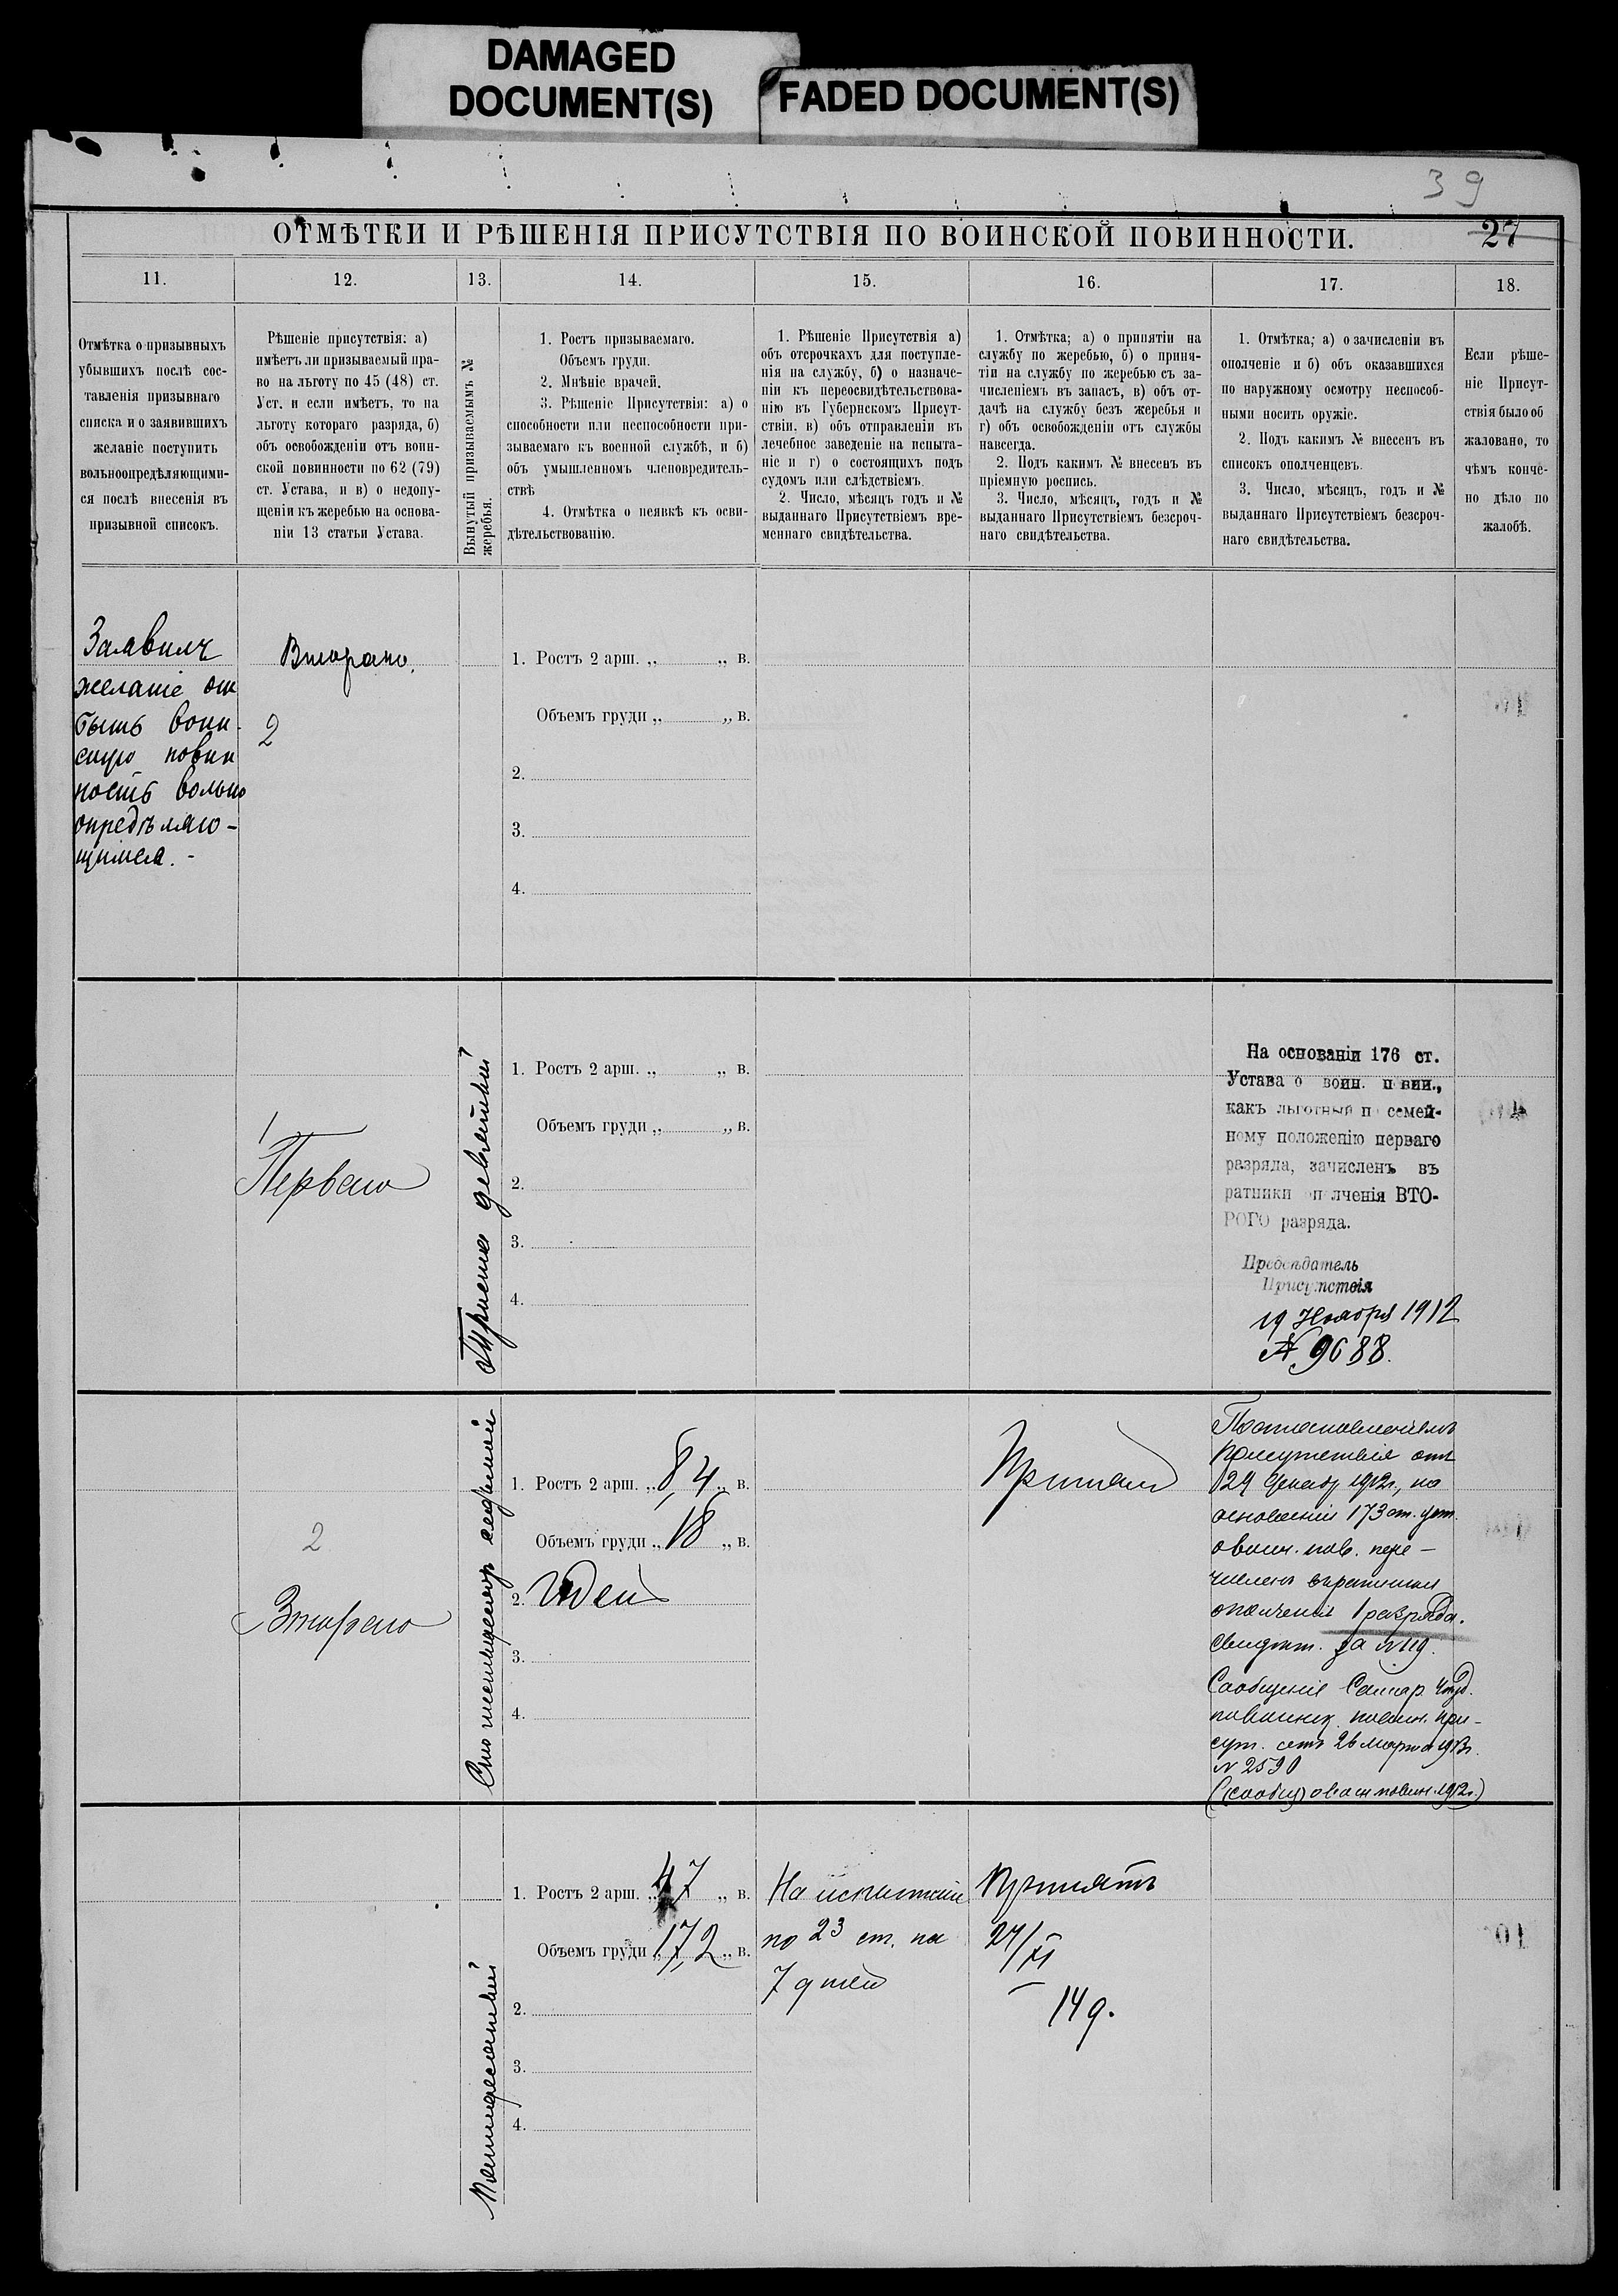 DAMAGED
DOCUMENT(S)
FADED DOCUMENT(S)
39
ОТМѢТКИ И РѢШЕНІЯ ПРИСУТСТВІЯ ПО ВОИНСКОЙ ПОВИННОСТИ.
27
11.
12.
13.
14.
15.
16.
17.
18.
Отмѣтка о призывныхъ
убывшихъ послѣ сос-
тавленія призывнаго
списка и о заявившихъ
желаніе поступить
вольноопредѣляющими-
ся послѣ внесенія въ
призывной список.
Рѣшеніе присутствія: а)
имѣетъ ли призываемый пра-
во на льготу по 45 (48) ст.
Уст. и если имѣетъ, то на
льготу котораго разряда, б)
объ освобожденіи отъ воин-
ской повинности по 62 (79)
ст. Устава, и в) о недопу-
щеніи къ жеребью на основа-
ніи 13 статьи Устава.
Вынутый призываемымъ №
жеребья.
1. Ростъ призываемаго.
Объемъ груди.
2. Мнѣніе врачей.
3. Рѣшеніе Присутствія: а) о
способности или неспособности при-
зываемаго къ военной службѣ, и б)
объ умышленномъ членовредитель-
ствѣ
4. Отмѣтка о неявкѣ къ осви-
дѣтельствованію.
1. Рѣшеніе Присутствія а)
объ отсрочкахъ для поступле-
нія на службу, б) о назначе-
ніи къ переосвидѣтельствова-
нію въ Губернскомъ Присут-
ствіи. в) объ отправленіи въ
лечебное заведеніе на испыта-
ніе и г) о состоящихъ подъ
судомъ или слѣдствіемъ.
2. Число, мѣсяцъ годъ и №
выданнаго Присутствіемъ вре-
меннаго свидѣтельства.
1. Отмѣтка; а) о принятіи на
службу по жеребью, б) о приня-
тіи на службу по жеребью съ за-
численіемъ въ запасъ, в) объ от-
дачѣ на службу безъ жеребья и
г) объ освобожденіи отъ службы
навсегда.
2. Подъ какимъ № внесенъ въ
пріемную роспись.
3. Число, мѣсяцъ, годъ и №
выданнаго Присутствіемъ безсроч-
наго свидѣтельства.
1. Отмѣтка; а) о зачисленіи въ
ополченіе и б) объ оказавшихся
по наружному осмотру неспособ-
ными носить оружіе.
2. Подъ какимъ № внесенъ въ
списокъ ополченцевъ.
3. Число, мѣсяцъ, годъ и №
выданнаго Присутствіемъ безсроч-
наго свидѣтельства.
Если рѣше-
ніе Присут-
ствія было об
жаловано, то
чѣмъ конче-
но дѣло по
жалобѣ.
Заявилъ
желаніе от
быть воин-
скую повин
ность вольно
опредѣляю-
щимся. -
Второго.
2
1. Ростъ 2 арш. „ „ в.
Объемъ груди „ „ в.
2.
3.
4.
1
Перваго
Триста девятый
1. Ростъ 2 арш. „ „ в.
Объемъ груди „ „ в.
2.
3.
4.
На основаніи 176 ст.
Устава о воин. п вин.,
какъ льготный п семей-
ному положенію перваго
разряда, зачисленъ въ
ратники оп лченія ВТО-
РОГО разряда.
Предсѣдатель
Присутствія
19 Ноября 1912
№ 9688.
2
Второго
Сто шестьдесятъ седьмой
1. Ростъ 2 арш. „ 8,4 „ в.
Объемъ груди „ 18 „ в.
2. Годенъ
3.
4.
Принятъ
Постановленіемъ
присутствія отъ
24 Декабр 1912г., на
основаніи 173 ст. уст.
о воин. пов. пере-
численъ въ ратники
ополченія 1 разряда.
свидѣт. за №119.
Сообщеніе Самар. уѣзд.
по воинск. повин. при-
сут. отъ 26 марта 1913г.
№ 2590
1. Ростъ 2 арш. „ 47 „ в.
Объемъ груди „ 17,2 „ в.
2.
3.
4.
Пятидесятый
На испытаніе
по 23 ст. на
7 дней
Принятъ
24/XI
14 д.